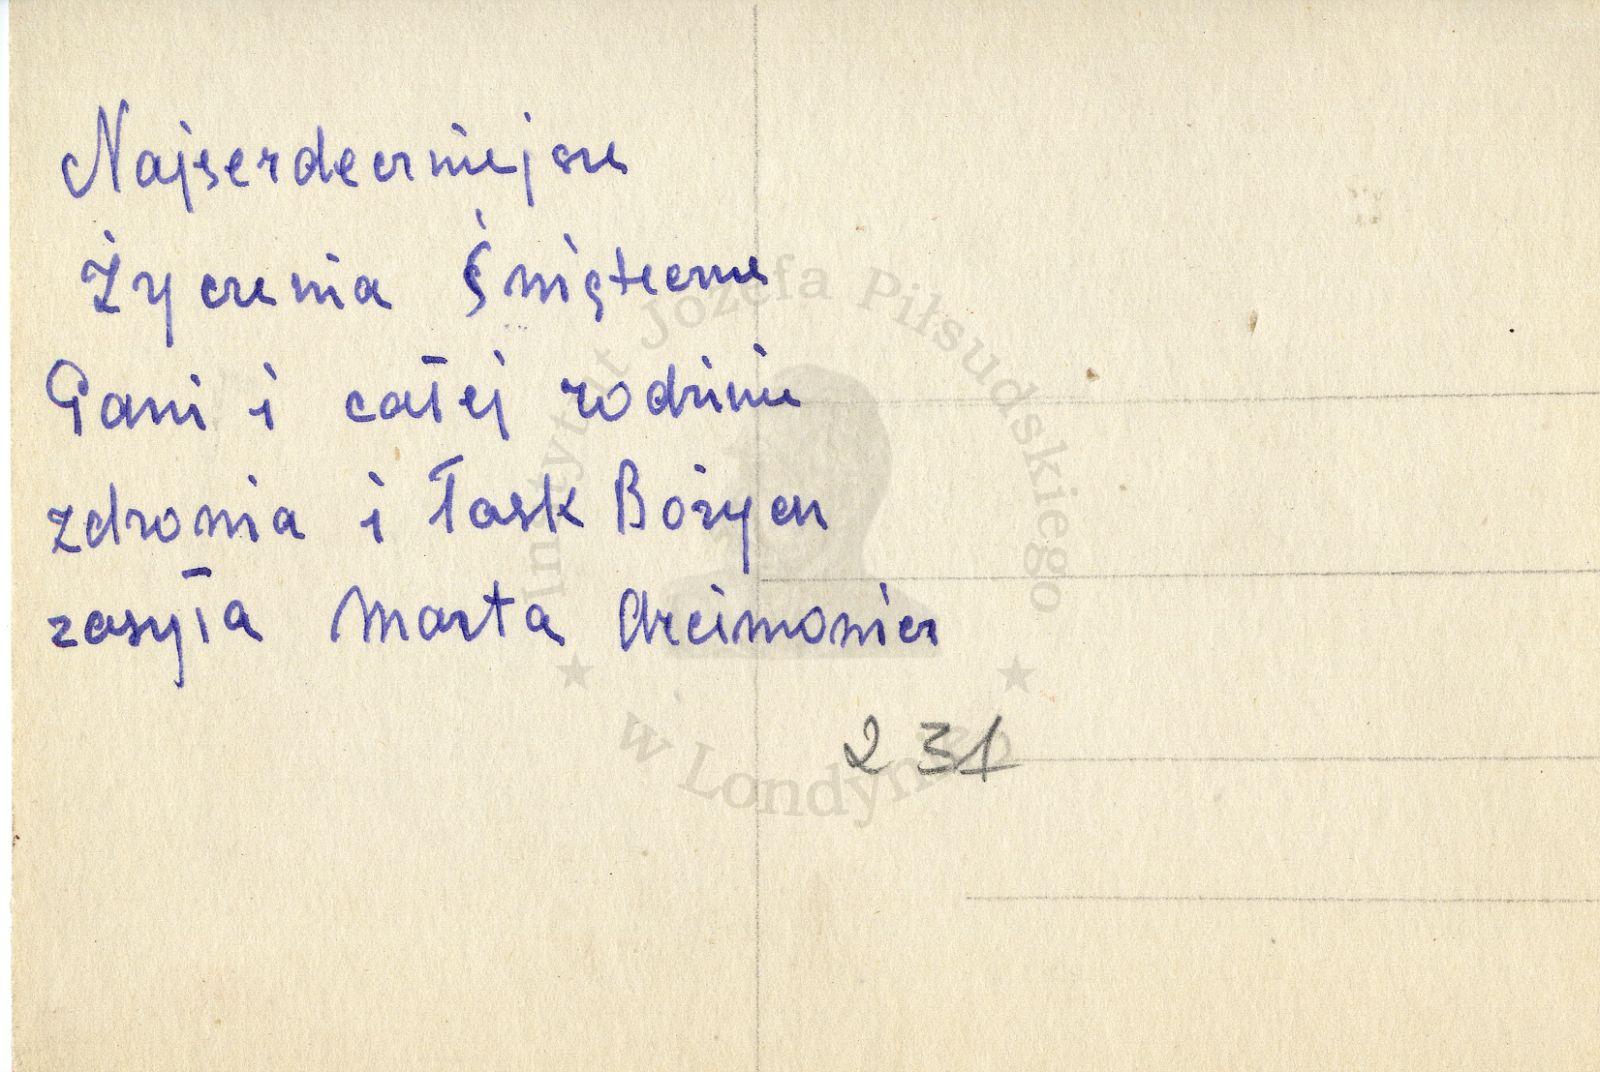 Najserdeczniejsze
Życzenia Świąteczne
Pani i całej rodzinie
zdrowia i Łask Bożych
zasyła Marta Arcimowicz
231
Instytut Józefa Piłsudskiego
w Londynie